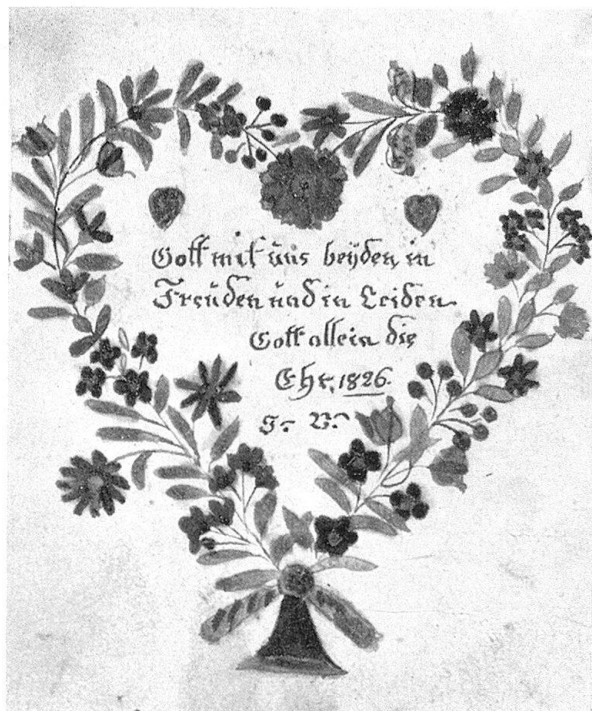 Gott mit uns beyden in
Freuden und in Leiden
Gott allein die
Ehr, 1826.